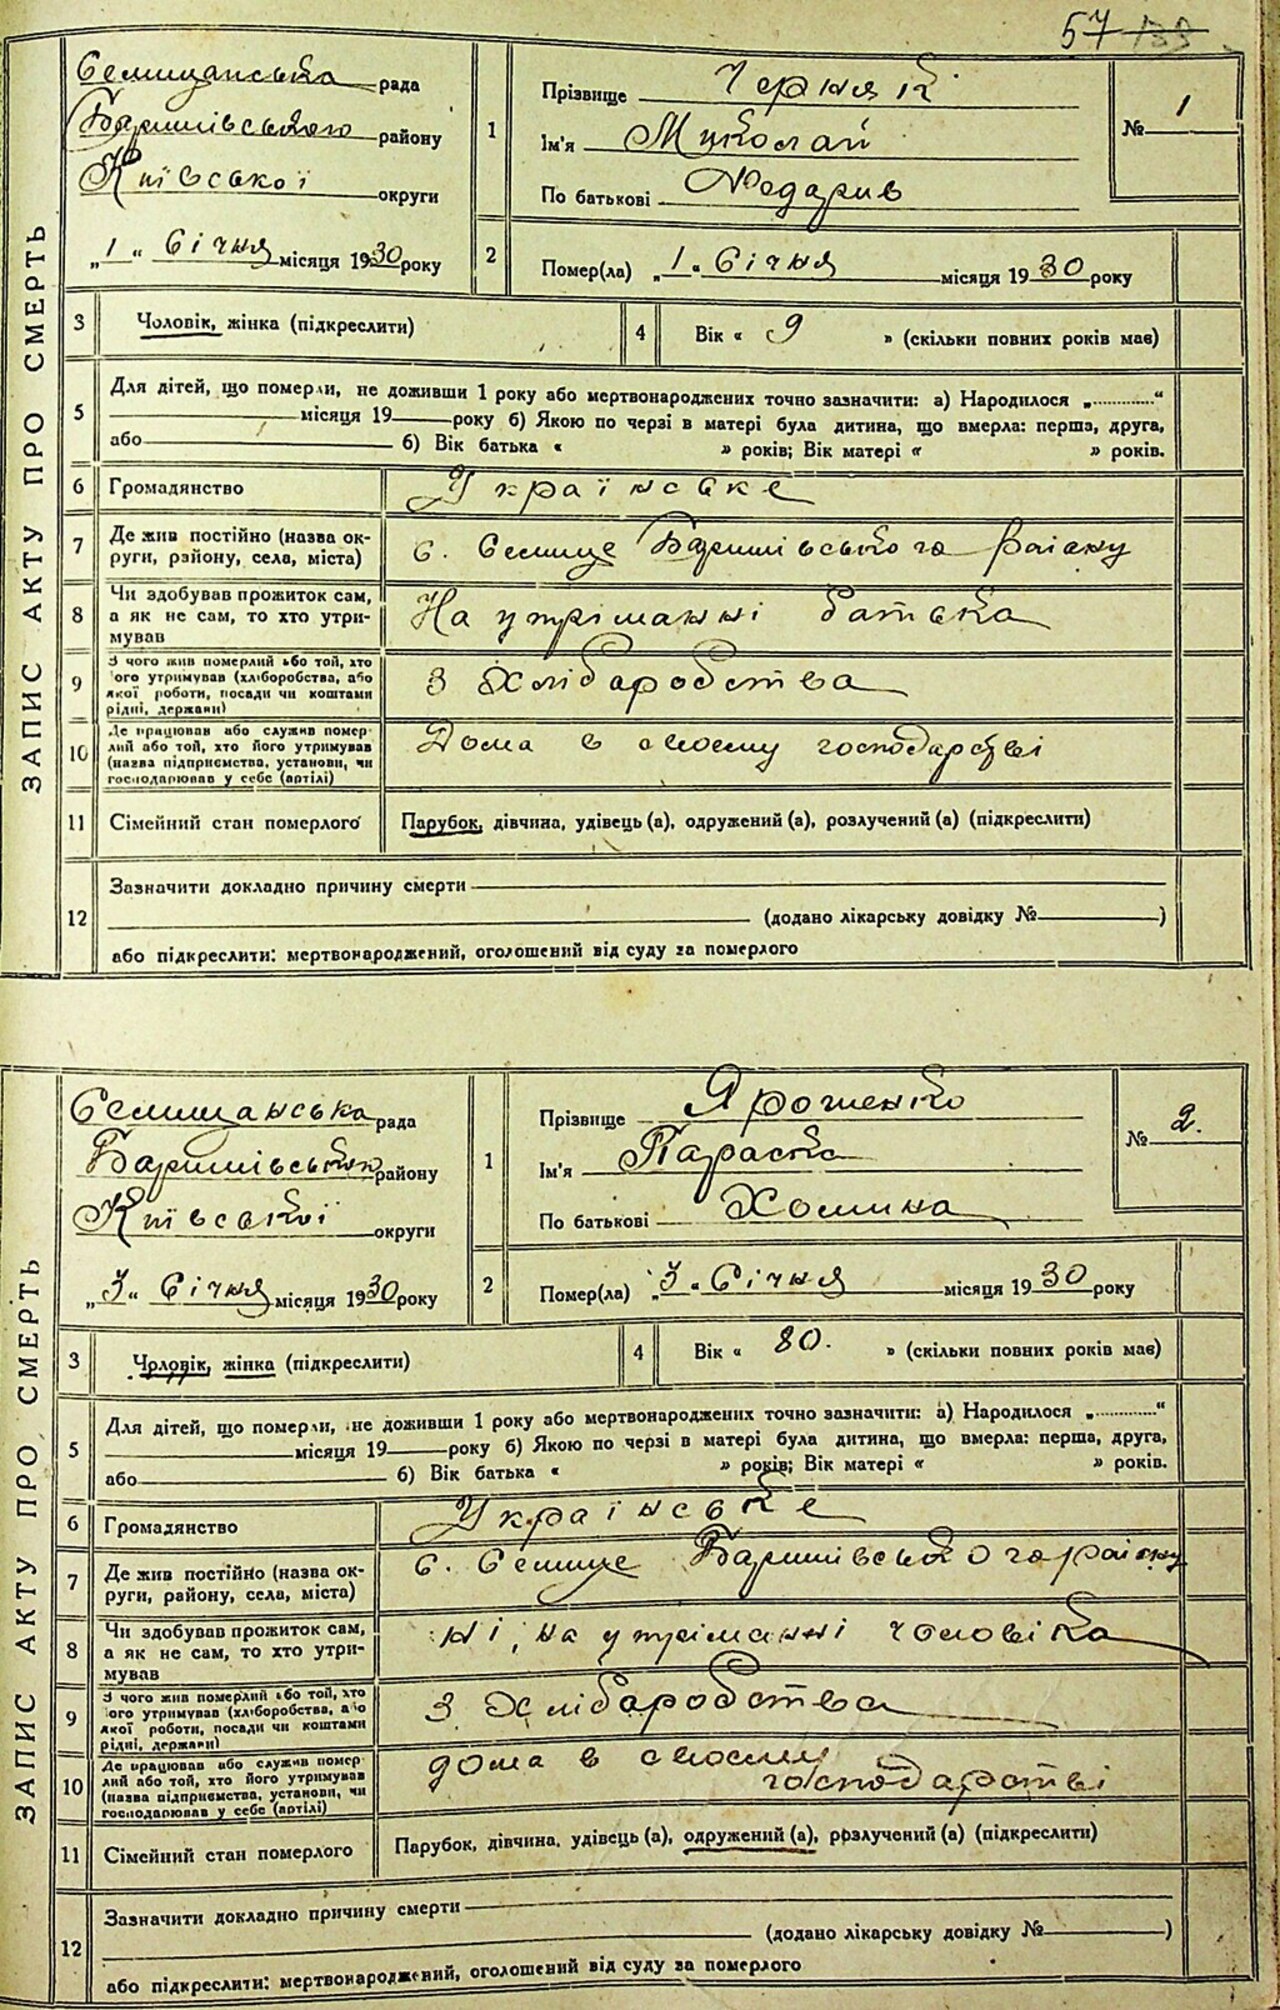 57 133
ЗАПИС АКТУ ПРО СМЕРТЬ
Селищанська рада
Баришівського району
Київської округи
„1“ Січня місяця 1930 року
1
Прізвище Черняк
Ім'я Миколай
По батькові
№ 1
2
Помер(ла) „1“ Січня місяця 1930 року
3 Чоловік, жінка (підкреслити)
4 Вік « 9 » (скільки повних років має)
5 Для дітей, що померли, не доживши 1 року або мертвонароджених точно зазначити: а) Народилося „.............“
місяця 19 року б) Якою по черзі в матері була дитина, що вмерла: перша, друга,
або б) Вік батька « » років; Вік матері « » років.
6 Громадянство Українське
7 Де жив постійно (назва ок-
руги, району, села, міста) с. Селище Баришівського району
8 Чи здобував прожиток сам,
а як не сам, то хто утри-
мував На утріманні батька
9 З чого жив померлий або той, хто
ого утримував (хліборобства, або
якої роботи, посади чи коштами
рідні, держави) З Хліборобства
10 Де працював або служив помер-
лий або той, хто його утримував
(назва підприємства, установи, чи
господарював у себе (артілі) Дома в своему господарстві
11 Сімейний стан померлого Парубок, дівчина, удівець (а), одружений (а), розлучений (а) (підкреслити)
12 Зазначити докладно причину смерти
(додано лікарську довідку № )
або підкреслити: мертвонароджений, оголошений від суду за померлого
ЗАПИС АКТУ ПРО СМЕРТЬ
Селищанська рада
Баришівського району
Київської округи
„3“ Січня місяця 1930 року
1
Прізвище Ярошенко
Ім'я Параска
По батькові Хомина
№ 2.
2
Помер(ла) „3“ Січня місяця 1930 року
3 Чоловік, жінка (підкреслити)
4 Вік « 80. » (скільки повних років має)
5 Для дітей, що померли, не доживши 1 року або мертвонароджених точно зазначити: а) Народилося „.............“
місяця 19 року б) Якою по черзі в матері була дитина, що вмерла: перша, друга,
або б) Вік батька « » років; Вік матері « » років.
6 Громадянство Українське
7 Де жив постійно (назва ок-
руги, району, села, міста) с. Селище Баришівського району
8 Чи здобував прожиток сам,
а як не сам, то хто утри-
мував ні, на утріманні чоловіка
9 З чого жив померлий або той, хто
ого утримував (хліборобства, або
якої роботи, посади чи коштами
рідні, держави) З Хліборобства
10 Де працював або служив помер-
лий або той, хто його утримував
(назва підприємства, установи, чи
господарював у себе (артілі) дома в своему
господарстві
11 Сімейний стан померлого Парубок, дівчина, удівець (а), одружений (а), розлучений (а) (підкреслити)
12 Зазначити докладно причину смерти
(додано лікарську довідку № )
або підкреслити: мертвонароджений, оголошений від суду за померлого